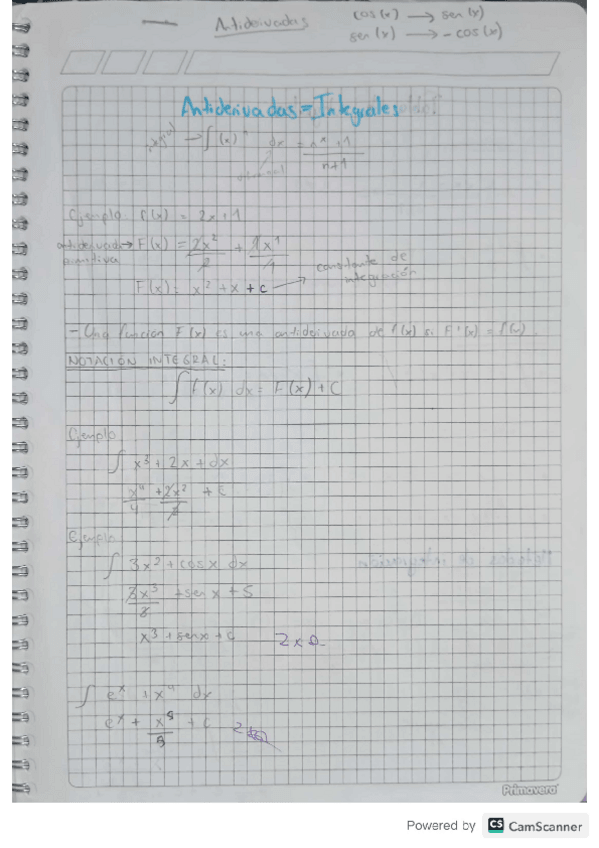 Antiderivadas
cos(x) → sen(x)
sen(x) → -cos(x)
Antiderivadas = Integrales
→ ∫(x)ⁿ dx = nˣ + 1 / n+1
Ejemplo f(x) = 2x + 1
antiderivada → F(x) = 2x²/2 + 1x¹/1
primitiva
F(x) = x² + x + c → constante de integración
- Una función F(x) es una antiderivada de f(x) si F'(x) = f(x)
NOTACIÓN INTEGRAL:
∫ f(x) dx = F(x) + C
Ejemplo
∫ x³ + 2x + dx
x⁴/4 + 2x²/2 + c
Ejemplo
∫ 3x² + cosx dx
3x³/3 + sen x + S
x³ + senx + c
∫ eˣ + x⁴ dx
eˣ + x⁵/5 + c
Primavera
Powered by CS CamScanner